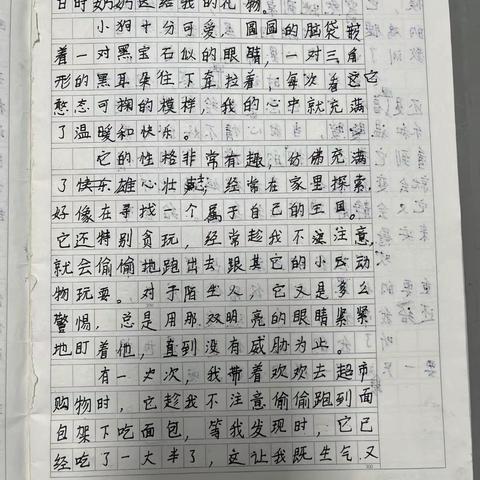 日时奶奶送给我的礼物。
小狗十分可爱，圆圆的脑袋嵌
着一对黑宝石似的眼睛，一对三角
形的黑耳朵往下耷拉着，每次看它
憨态可掬的模样，我的心中就充满
了温暖和快乐。
它的性格非常有趣，仿佛充满
了雄心壮志，经常在家里探索，
好像在寻找一个属于自己的王国。
它还特别贪玩，经常趁我不注意，
就会偷偷地跑出去跟其它的小动
物玩耍。对于陌生人，它又是多么
警惕，总是用那双明亮的眼睛紧紧
地盯着他，直到没有威胁为止。
有一次，我带着欢欢去超市
购物时，它趁我不注意偷偷跑到面
包架下吃面包，等我发现时，它已
经吃了一大半了，这让我既生气又